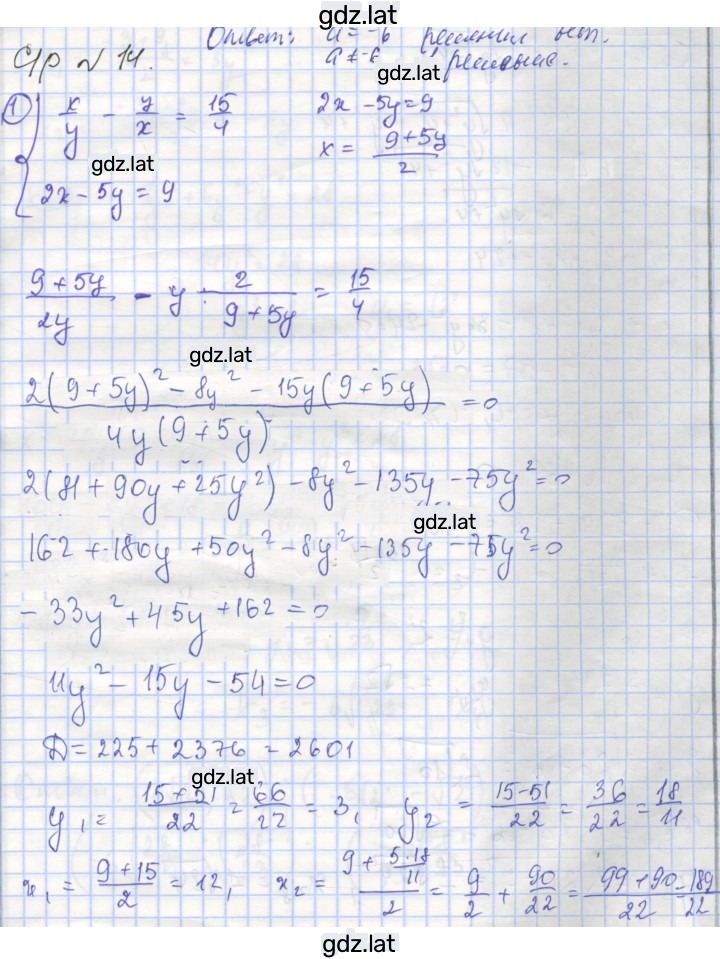 gdz.lat
Ответ: a = -6 решений нет.
a ≠ -6 1 решение.
С/Р № 14.
1) { x/y - y/x = 15/4 2x - 5y = 9
gdz.lat x = (9+5y)/2 gdz.lat
2x - 5y = 9
(9+5y)/2y - y · 2/(9+5y) = 15/4
gdz.lat
(2(9+5y)² - 8y² - 15y(9+5y))/(4y(9+5y)) = 0
2(81 + 90y + 25y²) - 8y² - 135y - 75y² = 0
gdz.lat
162 + 180y + 50y² - 8y² - 135y - 75y² = 0
- 33y² + 45y + 162 = 0
11y² - 15y - 54 = 0
D = 225 + 2376 = 2601
gdz.lat
y₁ = (15+51)/22 = 66/22 = 3, y₂ = (15-51)/22 = 36/22 = 18/11
x₁ = (9+15)/2 = 12, x₂ = (9 + (5·18)/11)/2 = 9/2 + 90/22 = (99+90)/22 = 189/22
gdz.lat